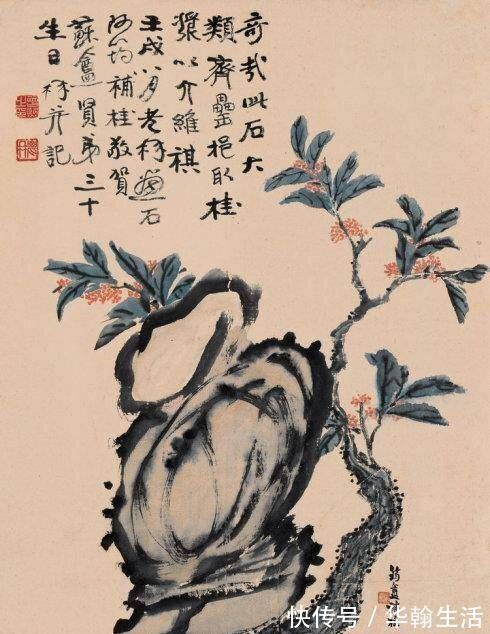 奇哉此石大
類齊罍挹取桂
漿以介維祺
壬戌八月老朽畫石
阿筠補桂敬賀
蘇盦賢弟三十
生日朽并記
快传号/华翰生活